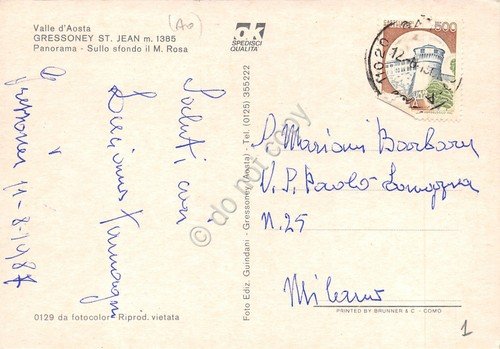 Valle d'Aosta
GRESSONEY ST. JEAN m. 1385
Panorama - Sullo sfondo il M. Rosa
(Ao)
ok
SPEDISCI
QUALITÀ
500
11020
Saluti cari
Luciana
Gressoney 11-8-1987
Foto Ediz. Guindani - Gressoney (Aosta) - Tel. (0125) 355222
S. Mariani Barbara
V. P. Paolo Lomazzo
N. 25
Milano
0129 da fotocolor - Riprod. vietata
PRINTED BY BRUNNER & C. - COMO
1
do not copy